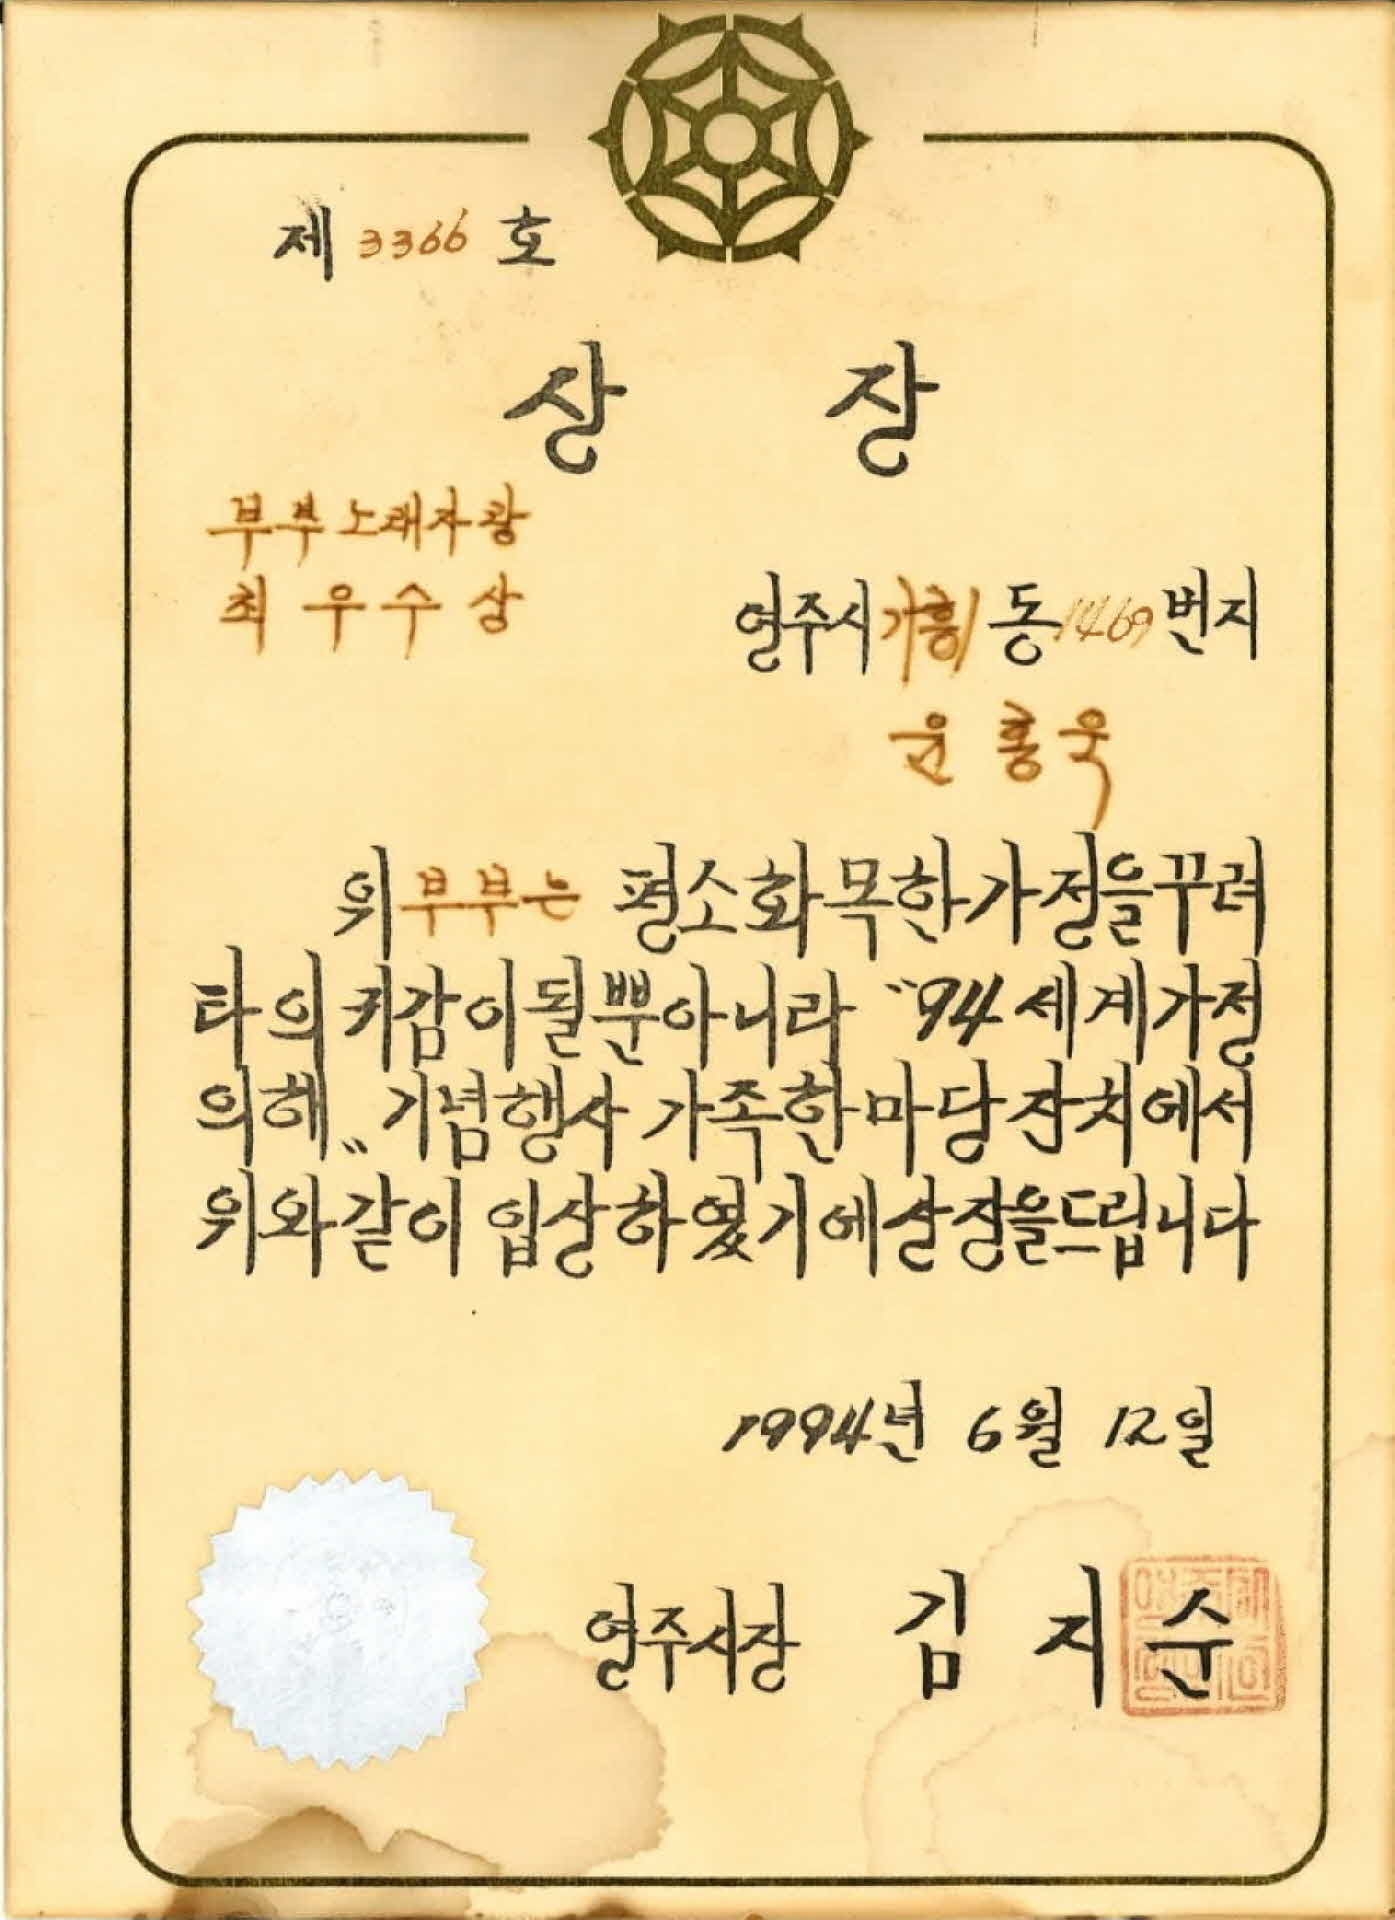 제 3366 호
상 장
부부노래자랑
최우수상
영주시 가흥1동 1469번지
윤홍욱
위 부부는 평소화목한가정을꾸려
타의 귀감이될뿐아니라 "94 세계가정
의해" 기념행사 가족한마당잔치에서
위와같이 입상하였기에상장을드립니다
1994년 6월 12일
영주시장 김지순